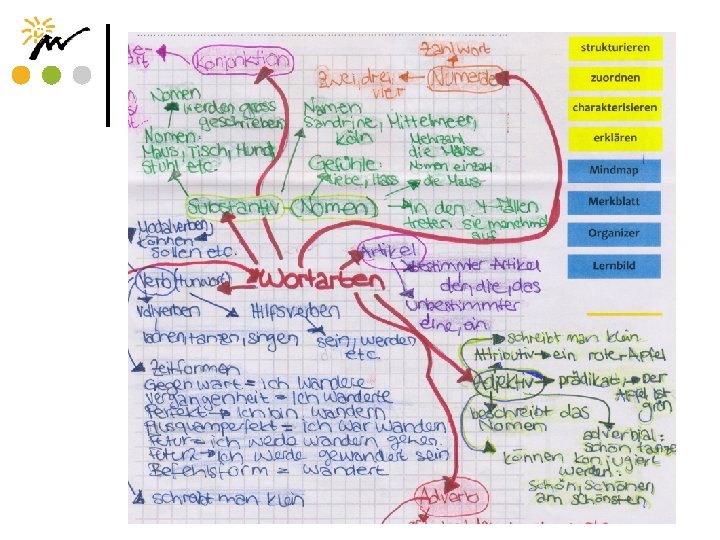 Konjunktion
Zahlwort
Zwei, drei,
vier
Numerale
Nomen
werden gross
geschrieben
Nomen:
Maus, Tisch, Hund,
Stuhl etc.
Namen
Sandrine, Mittelmeer,
Köln
Gefühle:
Liebe, Hass
Mehrzahl
die Mäuse
Nomen einzahl
die Maus
Substantiv (Nomen)
In den 4 Fällen
treten sie manchmal
auf
Modalverben,
können
sollen etc.
Verb (Tunwort)
Wortarten
Artikel
bestimmter Artikel
der, die, das
unbestimmter
eine, ein
Vollverben
lachen, tanzen, singen
Hilfsverben
sein, werden
etc
Zeitformen
Gegenwart = ich wandere
Vergangenheit = ich wanderte
Perfekt → ich bin wandern
Plusquamperfekt = ich war wandern
Futur = ich werde wandern gehen.
Futur2 → ich werde gewandert sein
Befehlsform = wandert
schreibt man klein
schreibt man klein
Attributiv → ein roter Apfel
Adjektiv
prädikativ → Der
Apfel ist
grün
beschreibt das
Nomen
adverbial:
schön tanzen
können konjugiert
werden:
schön, schöner,
am schönsten
Adverb
strukturieren
zuordnen
charakterisieren
erklären
Mindmap
Merkblatt
Organizer
Lernbild